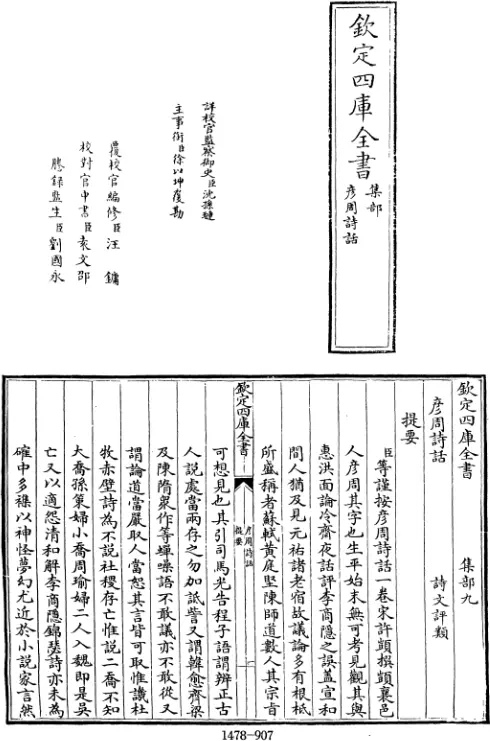 欽定四庫全書
集部
彦周詩話
詳校官監察御史臣沈孫璉
主事銜臣徐以坤覆勘
覆校官編修臣汪鏞
校對官中書臣袁文邵
謄錄監生臣劉國永
欽定四庫全書 集部九
彦周詩話 詩文評類
提要
臣等謹按彦周詩話一卷宋許顗撰顗襄邑
人彦周其字也生平始末無可考見觀其與
惠洪面論冷齋夜話評李商隱之誤蓋宣和
間人猶及見元祐諸老宿故議論多有根柢
所盛稱者蘇軾黄庭堅陳師道數人其宗旨
欽定四庫全書
彦周詩話
提要
一
可想見也其引司馬光告程子語謂辨正古
人説處當兩存之勿加詆訾又謂韓愈齊梁
及陳隋衆作等蟬噪語不敢議亦不敢從又
謂論道當嚴取人當恕其言皆可取惟譏杜
牧赤壁詩為不説社稷存亡惟説二喬不知
大喬孫策婦小喬周瑜婦二人入魏即是吳
亡又以適怨清和解李商隱錦瑟詩亦未為
確中多襍以神怪夢幻尤近於小説家言然
1478-907